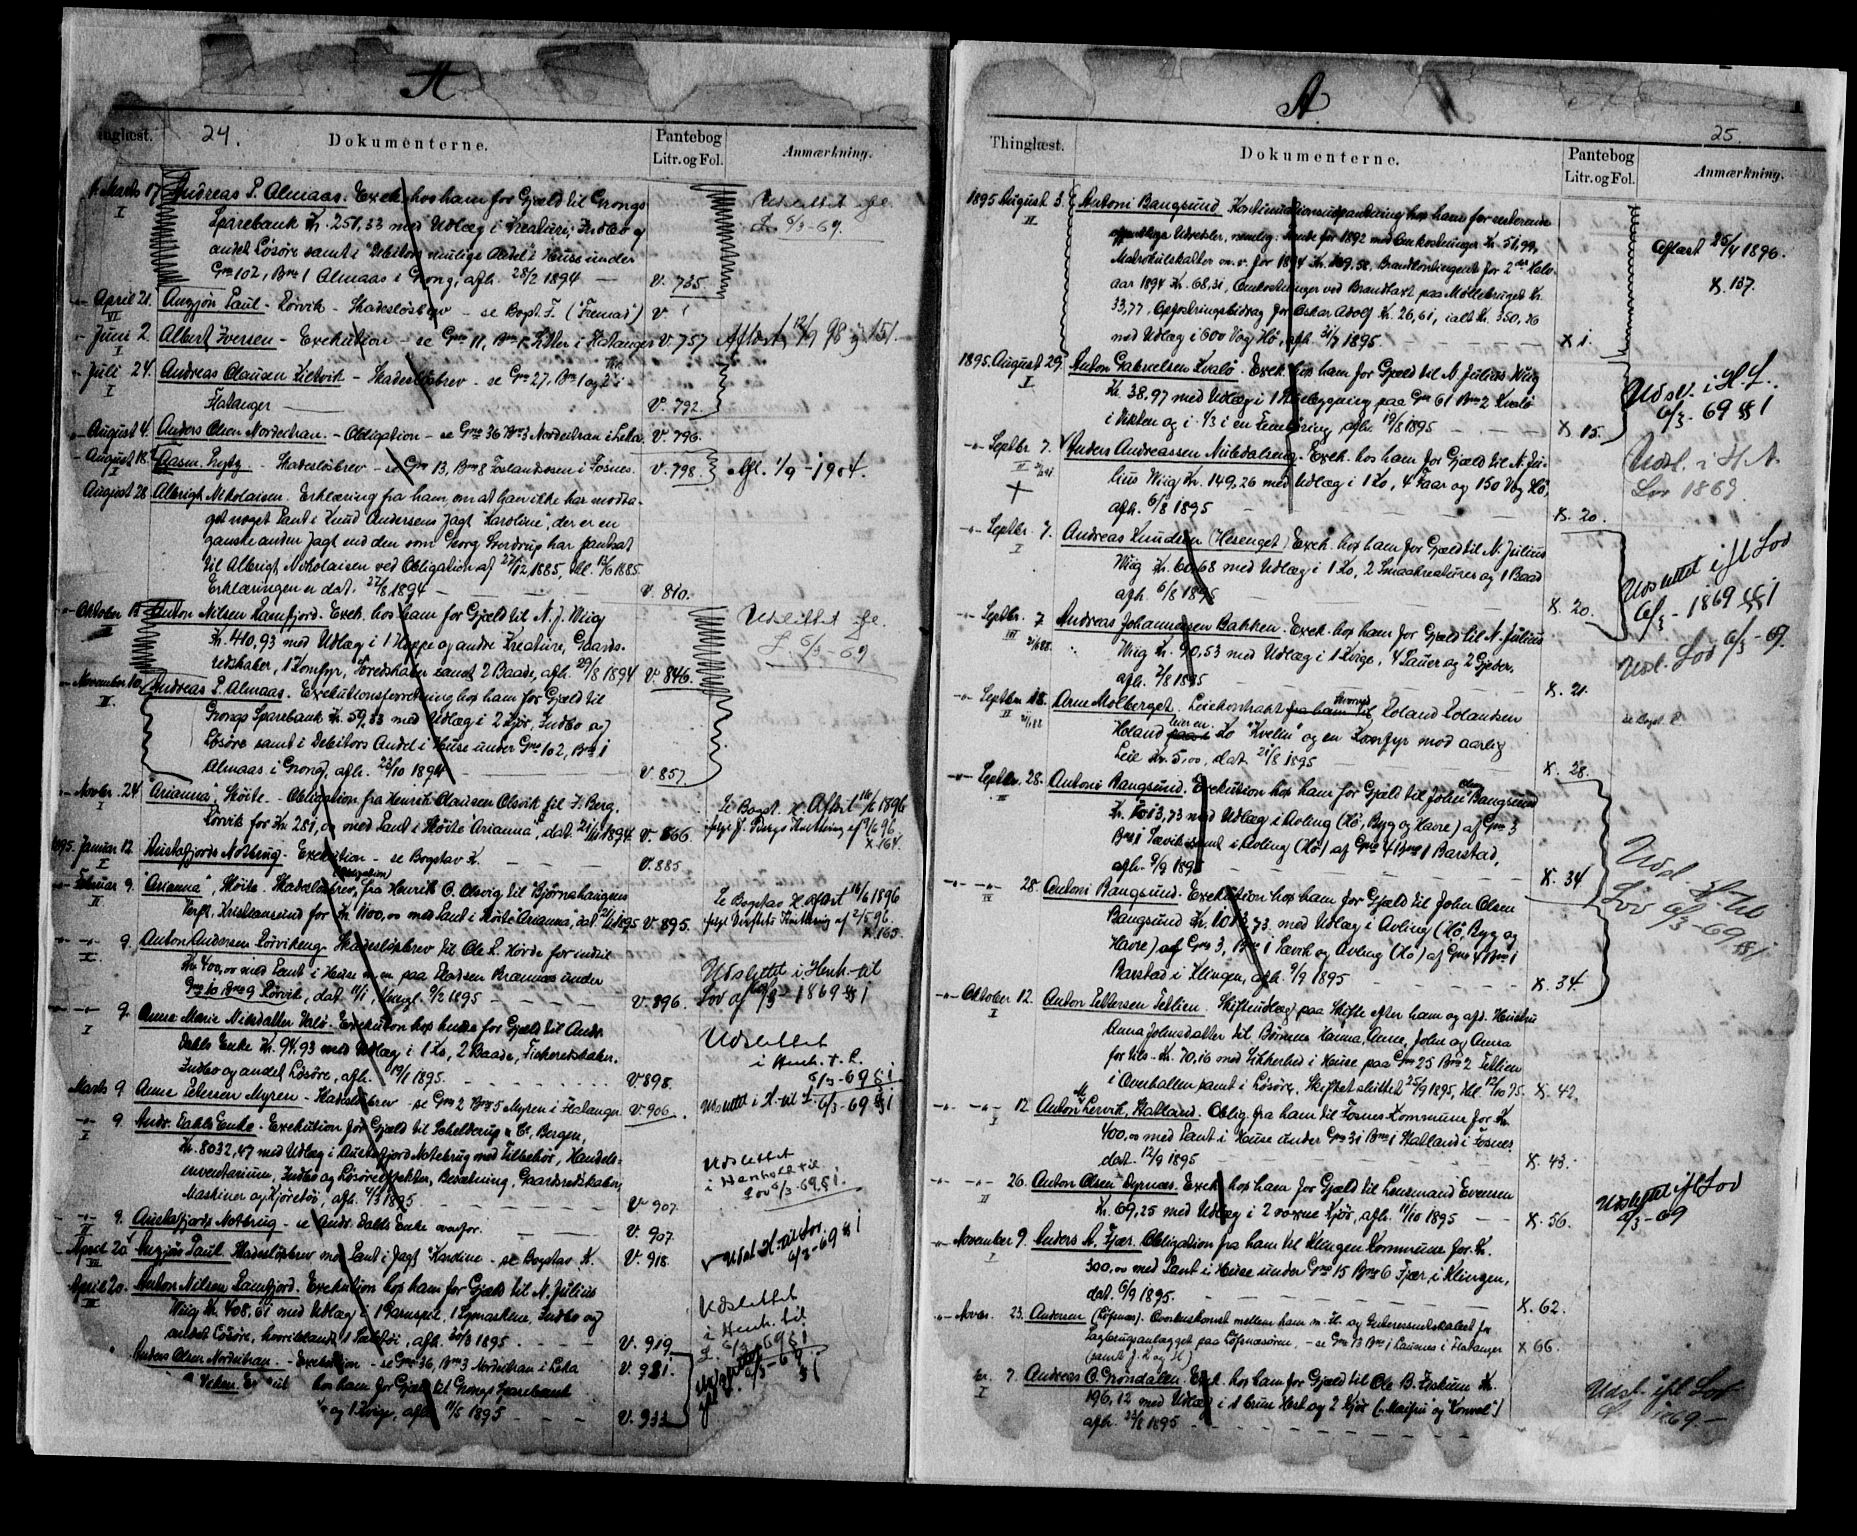 A
24.
Dokumenterne.
Pantebog
Litr. og Fol.
Anmærkning.
Marts 17
I
Andreas P. Almaas. Exek. hos ham for Gjæld til Grongs
Sparebank Kr. 251,33 med Udlæg i Kreature, Indbo og
andet Løsøre samt i Debitors mulige Andel i Huse under
Gno 102, Bno 1 Almaas i Grong, afh. 28/2 1894 —
V. 735.
Udslettet
L. 6/3-69.
-"- April 21.
VI
Angjön Paul - Rörvik - Skadesløsbrev - se Bogst. F. (Fremad)
V.
-"- Juni 2.
I
Albert Iversen - Exekution - se Gno 11, Bno 1 i Flatanger
V. 757
Afløst 98
-"- Juli 24.
I
Andreas Olausen Kilvik - Skadesløsbrev - se Gno 27. Bno 1 og 2 i
Flatanger
V. 792.
-"- August 4.
Anders Olsen Nordeihan. - Obligation - se Gno 36 Bno 3 Nordeihan i Leka
V. 796.
-"- August 18
I
Skadesløsbrev - se Gno 13, Bno 8 Foslandsosen i Fosnes.
V. 798.
Afl. 1/9 - 1904.
August 28
Albrigt Nikolaisen. Erklæring fra ham om at han ikke har modta-
get noget Pant i Knud Andersens Jagt "Karoline", der er en
ganske anden Jagt end den som Georg Sverdrup har pantsat
til Albrigt Nikolaisen ved Obligation af 27/12 1885,
Erklæringen er dat. 27/8 1894
V. 810.
-"- Oktober 13
Anton Nilsen Ramfjord. Exek. hos ham for Gjæld til N. J. Wiig
Kr. 410,93 med Udlæg i 1 Hoppe og andre Kreature, Gaards-
redskaber, 1 Komfyr, Foredskaber samt 2 Baade, afh. 29/8 1894
V. 846.
Udslettet
L. 6/3-69
-"- November 10.
II.
Andreas P. Almaas. Exekutionsforretning hos ham for Gjæld til
Grongs Sparebank Kr. 59,33 med Udlæg i 2 Kjør, Indbo og
Løsøre samt i Debitors Andel i Huse under Gno 102, Bno 1
Almaas i Grong, afh. 23/10 1894
V. 857.
-"- Novbr. 24.
"Arianna", Skøite. - Obligation fra Henrik Olausen Olsvik til J. Berg,
Rörvik for Kr. 281,00 med Pant i Skøite "Arianna", dat. 21/11 1894.
V. 866.
Se Bogst. H Afløst 16/6 1896
X 164.
1895. Januar 12.
I
Aunetsfjords Notbrug - Exekution - se Bogstav K.
V. 885
-"- Februar 9.
II
"Arianna", Skøite. Skadesløsbrev, (Obligation) fra Henrik O. Olsvig til Bjørnehaugens
Verft, Kristiansund for Kr. 1100,00 med Pant i Skøite "Arianna", dat. 1895
V. 895.
Se Bogstav H. Afløst 16/6 1896
X 165
-"- -"- 9.
Anton Andersen Rörvikeng. Skadesløsbrev til Ole P. Hörde for indtil
Kr. 400,00 med Pant i Huse m. m. paa Pladsen Brænnes under
Gno 10 Bno 9 Rörvik, dat. 11/1, thingl. 9/2 1895
V. 896.
Udslettet i Henh. til
Lov af 6/3 - 1869 § 1
-"- -"- 9.
I
Anne Marie Nilsdatter Valø. Exekution hos hende for Gjæld til Andr.
Dahls Enke Kr. 94,93 med Udlæg i 1 Ko, 2 Baade, Fiskeredskaber,
Indbo og andet Løsøre, afh. 19/1 1895.
V 898.
Udslettet
i Henh. t. L.
6/3-69 § 1
Marts 9
Anne Petersen Myren - Skadesløsbrev - se Gno 2 Bno 5 Myren i Flatanger
V. 906.
Udslettet i H. til L. 6/3-69 § 1
-"- 9.
I
Andr. Dahls Enke - Exekution for Gjæld til Schelderup & Co, Bergen,
Kr. 8032,47 med Udlæg i Aunetsfjord Notebrug med Tilbehør, Handels-
inventarium, Indbo og Løsøreeffekter, Besætning, Gaardsredskaber,
Maskiner og Kjøretøi, afh. 4/3 1895
V 907.
Udslettet
i Henhold til
Lov 6/3-69 § 1.
-"- 9.
II
Aunetsfjords Notbrug - se Andr. Dahls Enke ovenfor.
V. 907.
April 20.
VII
Angjön Paul. Skadesløsbrev med Pant i Jagt "Karoline" - se Bogstav K.
V. 918.
Udsl. H. til Lov.
6/3-69 § 1
April 20.
III
Anton Nilsen Ramfjord. Exekution hos ham for Gjæld til N. Julius
Wiig Kr. 408,61 med Udlæg i 1 Garnspil, 1 Symaskine, Indbo og
andet Løsøre, hvoriblandt 1 afh. 30/3 1895.
V. 919.
Udslettet
i Henh. til
L. 6/3-69 § 1
Anders Olsen Nordeihan. - Exekution - se Gno 36, Bno 3 Nordeihan i Leka
V. 931.
hos ham for Gjæld til Grongs Sparebank
og 1 Kvige, afh. 11/5 1895
V. 933
A.
25.
Thinglæst.
Dokumenterne.
Pantebog
Litr. og Fol.
Anmærkning.
1895 August 3.
II
Antoni Bangsund. Kontinuationsudpantning hos ham for resterende
offentlige Udredsler, nemlig: Rente for 1892 med Omkostninger Kr. 51,99,
Matrikulskatter m. v. for 1894 Kr. 169,58, Brandkontingent for 2det Halv-
aar 1894 Kr. 68,31, Omkostninger ved Brandtaxt paa Møllebruget Kr.
33,77, Opfostringsbidrag for Oskar Adolf Kr. 26,61, ialt Kr. 350,26
med Udlæg i 600 Vog Hø, afh. 31/7 1895
X 1.
Aflæst 25/4 1896.
X. 157.
1895. August 29.
I
Anton Gabrielsen Kvalø. Exek. hos ham for Gjæld til N. Julius Wiig
Kr. 38,97 med Udlæg i 1 Huebygning paa Gno 61 Bno 2 Kvalø
i Vikten og i 1/3 i en Femböring, afh. 19/8 1895
X 15.
Udsl. i H. L.
6/3 - 69 § 1
-"- Septbr. 7.
II
Anders Andreassen Mildalseng. Exek. hos ham for Gjæld til N. Ju-
lius Wiig Kr. 149,26 med Udlæg i 1 Ko, 4 Faar og 150 Vog Hø,
afh. 6/8 1895
X. 20.
Udsl. i H. t.
Lov 1869.
-"- Septbr. 7.
I
Andreas Knudsen (Hesenget) Exek. hos ham for Gjæld til N. Julius
Wiig Kr. 60,68 med Udlæg i 1 Ko, 2 Smaakreaturer og 1 Baad
afh. 6/8 1895
X. 20.
Udslettet ifl Lov
6/3 - 1869 § 1
-"- Septbr. 7
III
Andreas Johannesen Bakken. Exek. hos ham for Gjæld til N. Julius
Wiig Kr. 90,53 med Udlæg i 1 Kvige, 4 Sauer og 2 Gjeder,
afh. 7/8 1895
X. 21.
Udsl. Lov 6/3-69.
-"- Septbr. 18.
II
Arne Molberget. Leiekontrakt fra ham til Roland Rolandsen
Holand Ko "Kvelin" og en Komfyr mod aarlig
Leie Kr. 5,00, dat. 21/8 1895
X. 28.
se Bogst. R.
-"- Septbr. 28.
III
Antoni Bangsund. Exekution hos ham for Gjæld til John Olsen Bangsund
Kr. 1013,73 med Udlæg i Avling (Hø, Byg og Havre) af Gno 3
Bno 1 Sævik samt i Avling (Hø) af Gno 4 Bno 1 Barstad,
afh. 9/9 1895
X. 34.
-"- -"- 28.
IV
Antoni Bangsund. Exekution hos ham for Gjæld til John Olsen
Bangsund Kr. 1013,73 med Udlæg i Avling (Hø, Byg og
Havre) af Gno 3, Bno 1 Sævik og Avling (Hø) af Gno 4 Bno 1
Barstad i Klingen, afh. 9/9 1895
X. 34.
Udsl. ifl.
Lov 6/3-69 § 1
-"- Oktober 12.
I
Anton Pettersen Tetlien. Skifteudlæg paa Skifte efter ham og afd. Hustru
Anna Johnsdatter til Børnene Hanna, Anne, John og Anna
for tils. Kr. 70,16 med Sikkerhed i Huse paa Gno 25 Bno 2 Tetlien
i Overhallen samt i Løsøre. Skiftet sluttet 25/9 1895, thl. 12/10 95.
X. 42.
-"- -"- 12.
I
Anton Lervik, Halland. Oblig. fra ham til Fosnes Kommune for Kr.
400,00 med Pant i Huse under Gno 31 Bno 1 Halland i Fosnes
dat. 12/9 1895
X. 43.
-"- -"- 26.
II
Anton Olsen Dyrnæs. Exek. hos ham for Gjæld til Lensmand Evensen
Kr. 69,25 med Udlæg i 2 voxne Kjør, afh. 11/10 1895
X. 56.
Udslettet ifl Lov
6/3-69
-"- November 9.
I
Anders A. Fjær. Obligation fra ham til Klingen Kommune for Kr.
300,00 med Pant i Huse under Gno 15 Bno 6 Fjær i Klingen,
dat. 6/9 1895.
X. 62.
-"- Novbr. 23.
Andersen (Löfsnæs). Overenskomst mellem ham m. fl. og Interessentskabet for
Sagbrugsanlægget paa Löfsnæsøren. - se Gno 13 Bno 1 Lausnes i Flatanger
(samt J. K og H)
X 66.
7.
I
Andreas O. Grøndalen. Exek. hos ham for Gjæld til Ole B. Kr.
196,12 med Udlæg i 1 brun Hest og 2 Kjør ("Maifri" og "Konval")
afh. 23/8 1895
Udsl. ifl Lov
1869.-